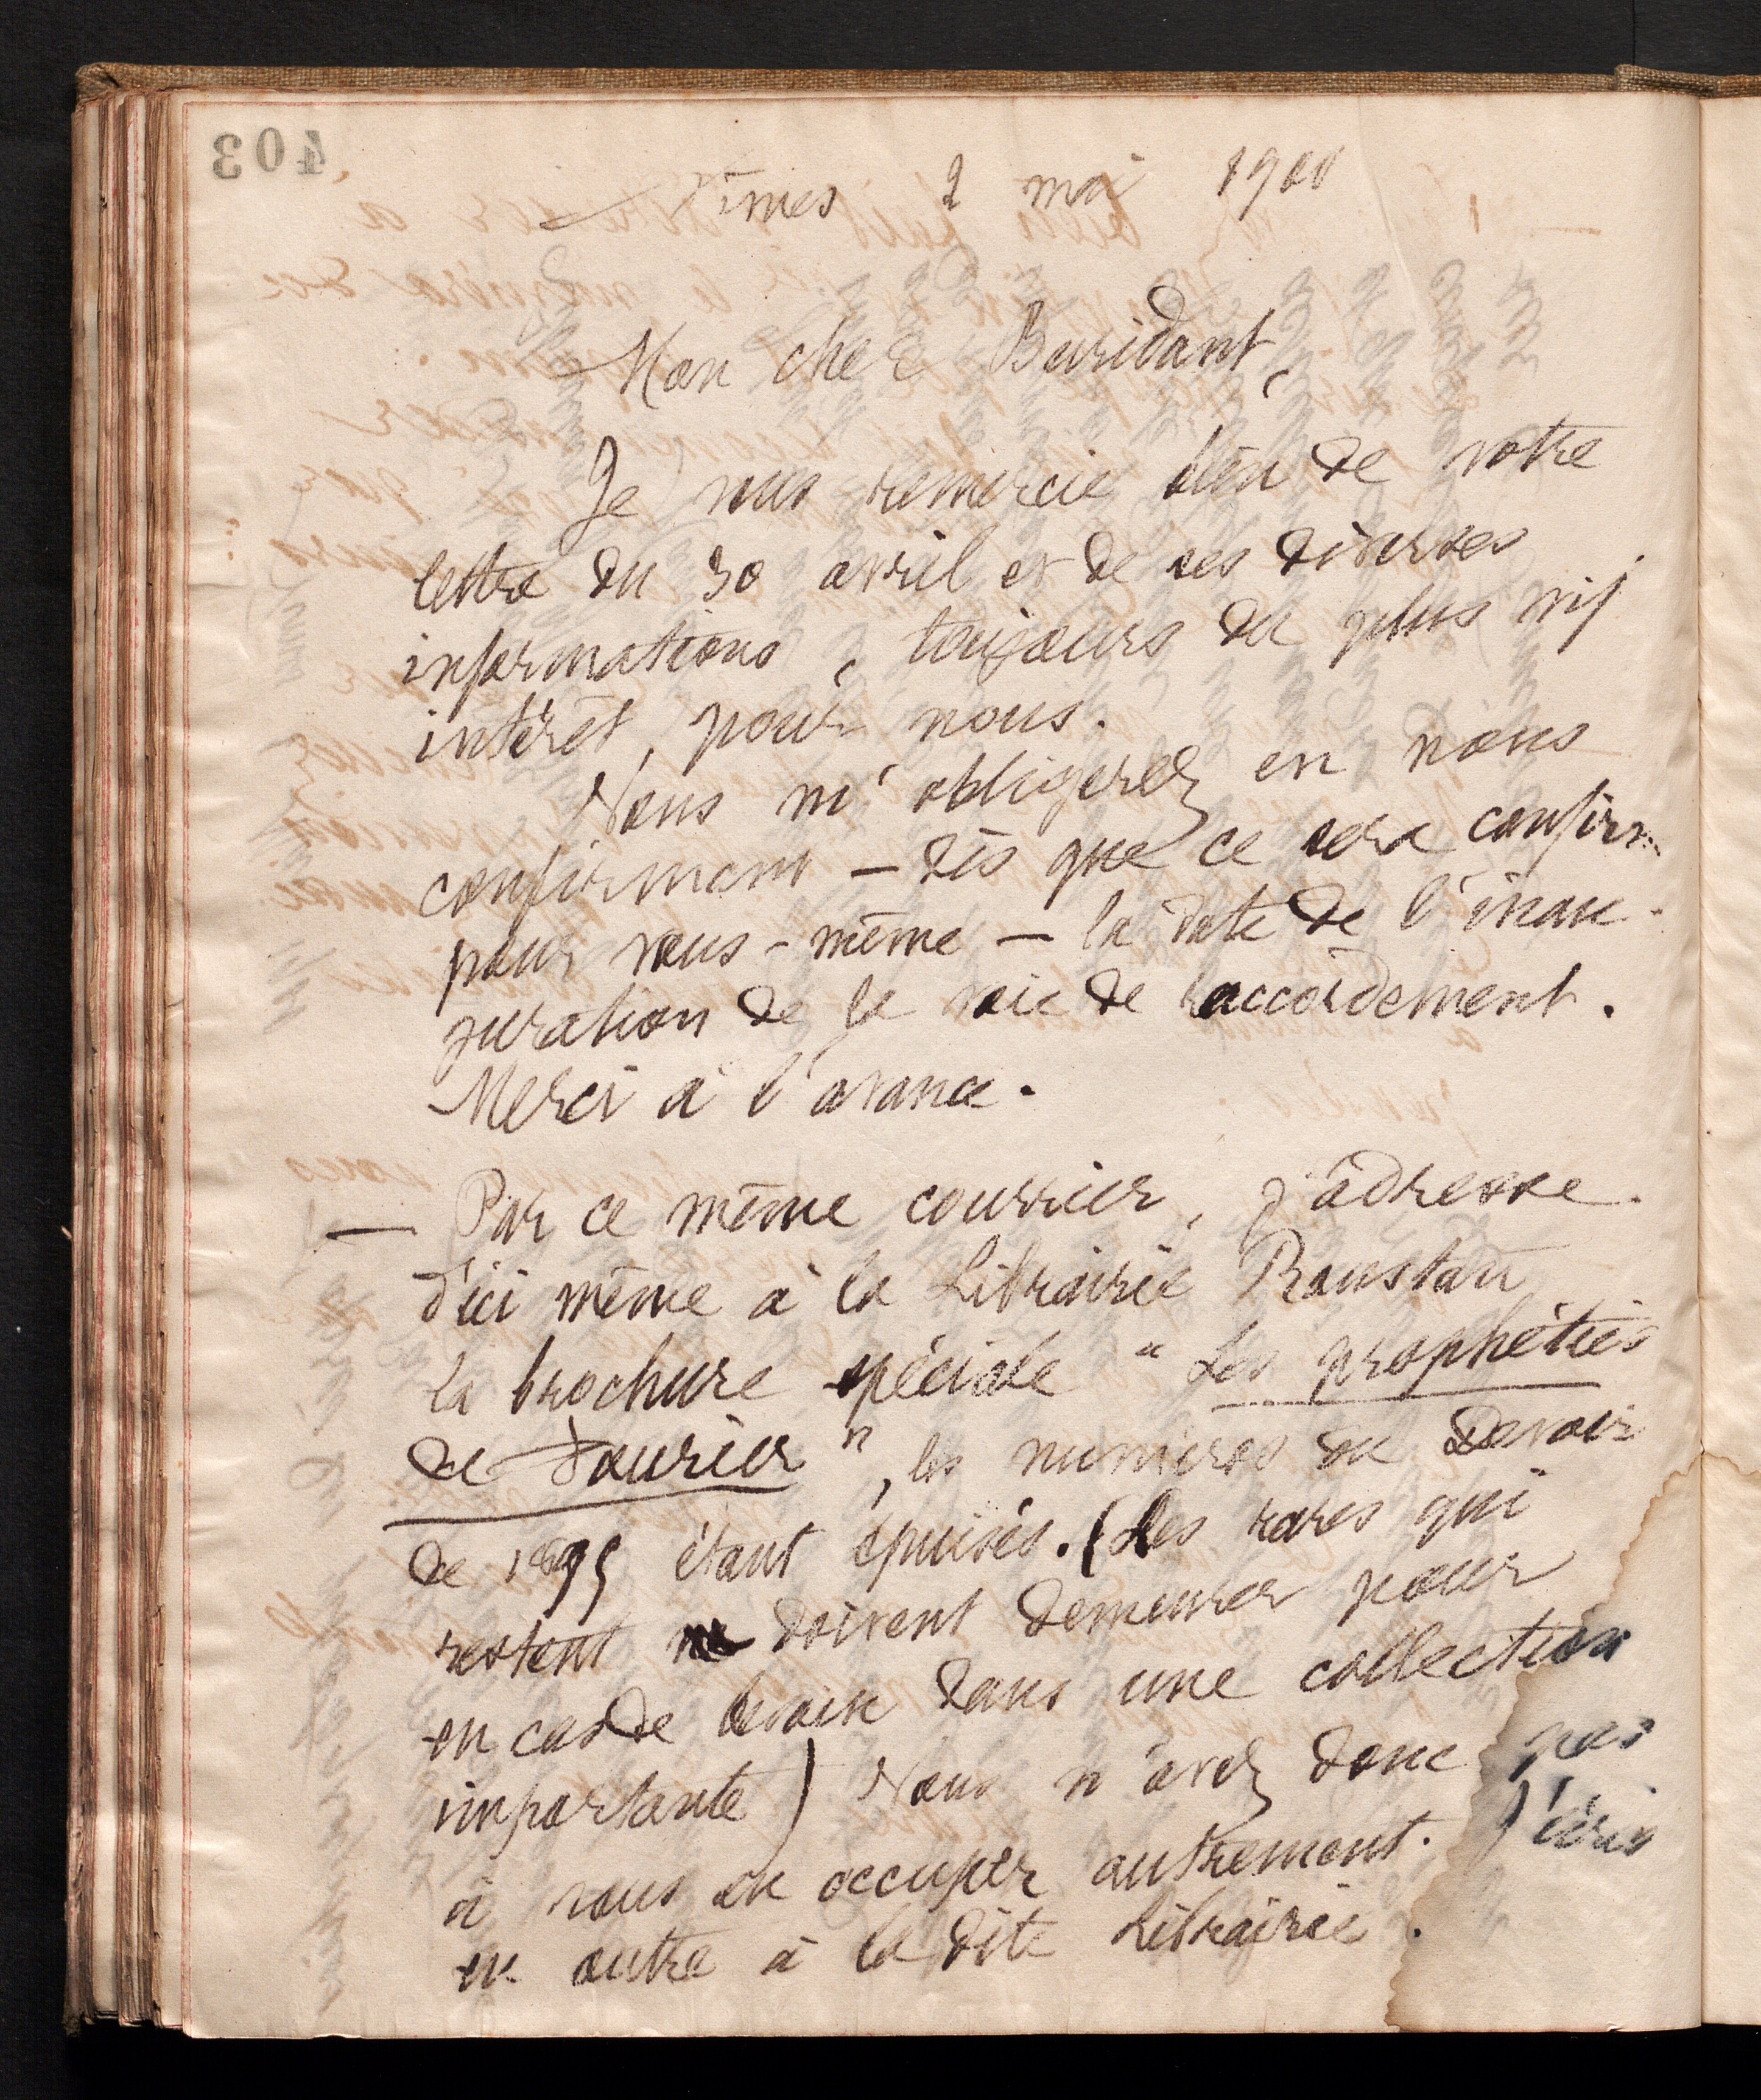 403
Nîmes 2 mai 1900
Mon cher Buridant,
Je vous remercie bien de votre
lettre du 30 avril et de ses diverses
informations, toujours du plus vif
intérêt, pour nous.
Vous m'obligerez en nous
confirmant – dès que ce sera confirm
pour vous-même – la date de l'inau-
guration de la voie de raccordement.
Merci à l'avance.
— Par ce même courrier, j'adresse
d'ici même à la Librairie Roustan
la brochure spéciale "Les prophéties
de Fourier", les numéros du Devoir
de 1895 étant épuisés. (Les rares qui
restent doivent demeurer pour
en cas de besoin dans une collection
importante) Vous n'avez donc pas
à vous en occuper autrement. J'écris
en outre à la dite Librairie.